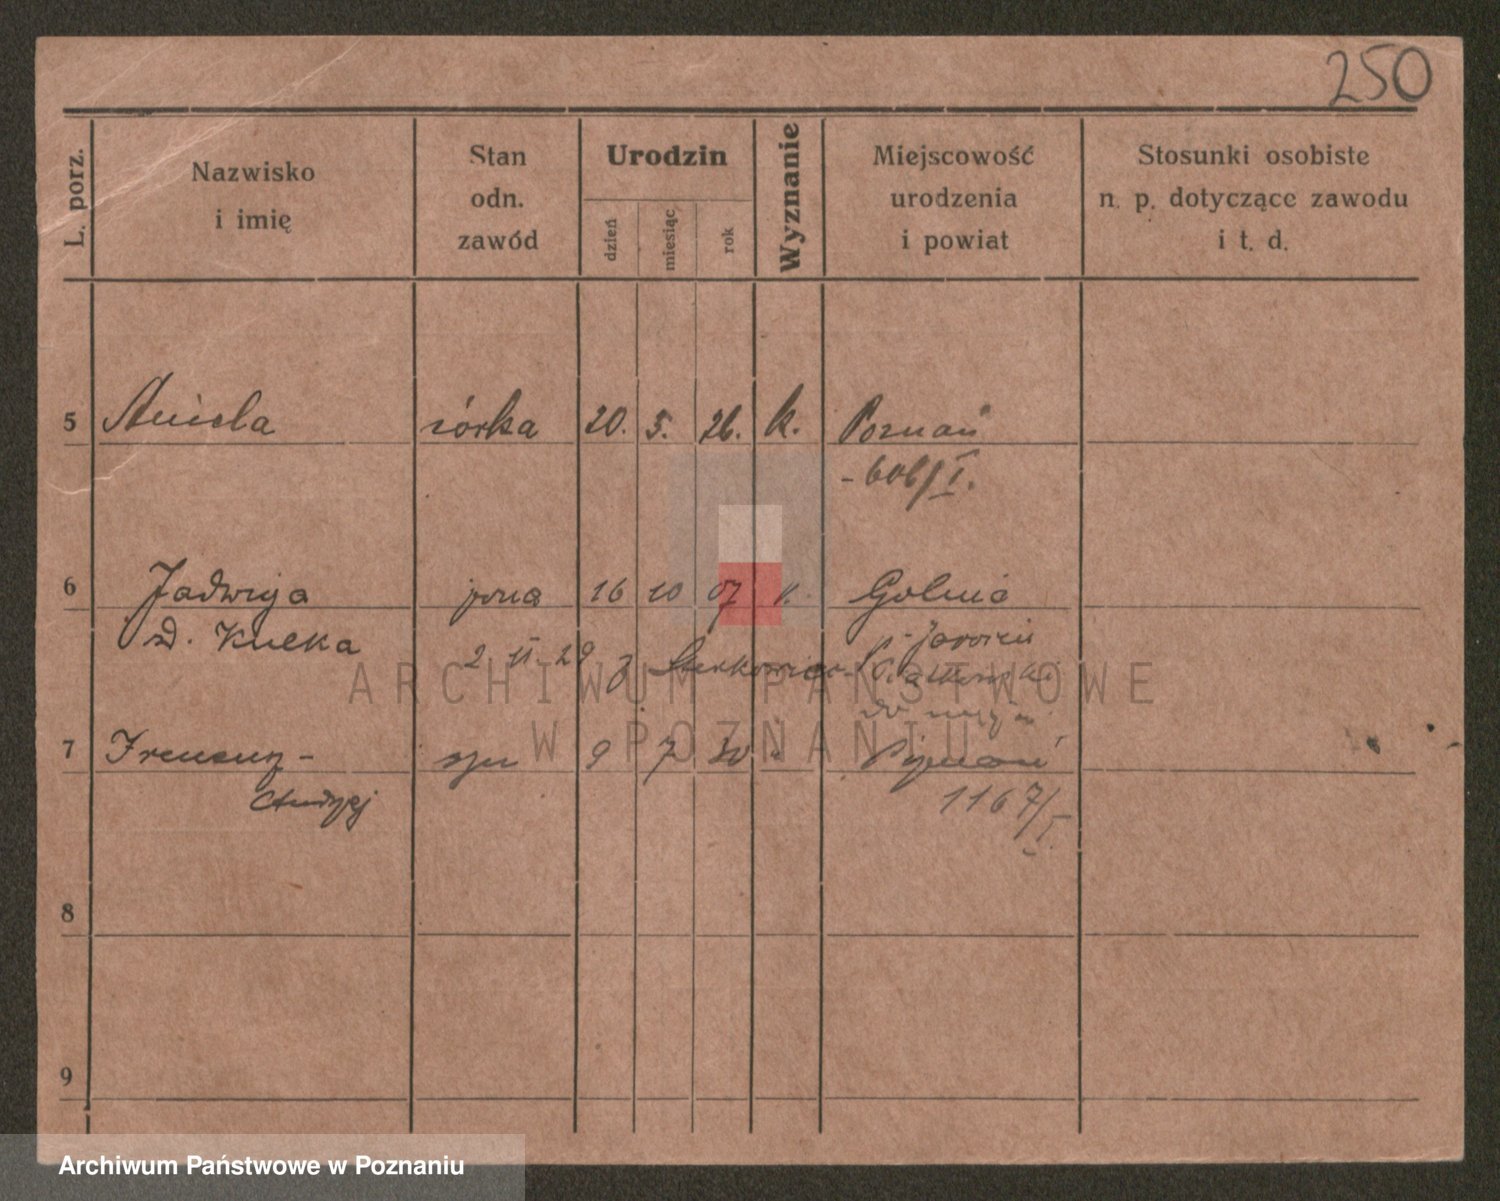 250
L. porz.
Nazwisko
i imię
Stan
odn.
zawód
Urodzin
dzień
miesiąc
rok
Wyznanie
Miejscowość
urodzenia
i powiat
Stosunki osobiste
n. p. dotyczące zawodu
i t. d.
5 Aniela córka 20. 5. 26. k. Poznań
-606/I.
6 Jadwiga żona 16 10 07 k.
z d. Kulka
2 II 29 z
7 Ireneusz- syn 9 7 30 Poznań
Andrzej
1167/I.
8
9
ARCHIWUM PAŃSTWOWE
W POZNANIU
Archiwum Państwowe w Poznaniu